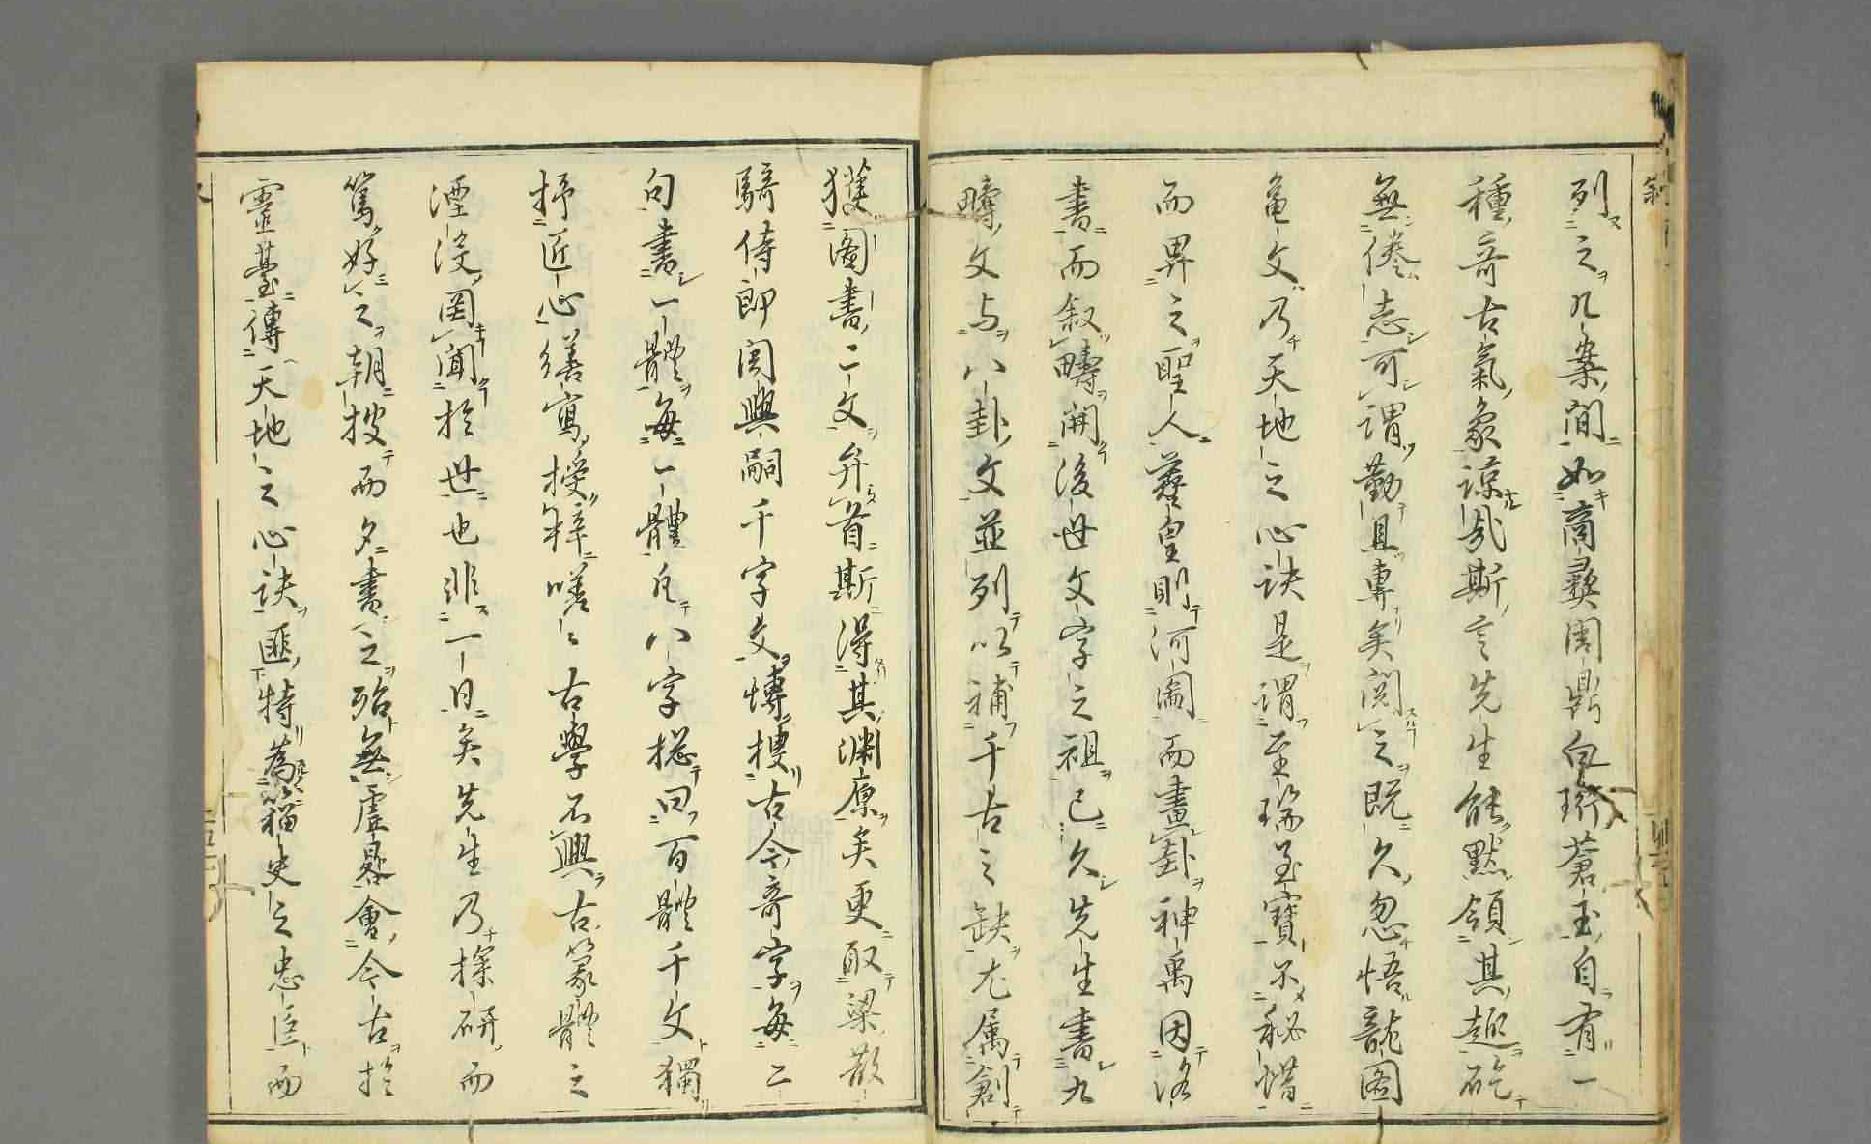 列之九案間如商彜周鼎白珩蒼玉自有一
種奇古氣象諒哉斯言先生能默領其趣矻
無倦志可謂勤且專矣閲之既久忽悟龍圖
亀文乃天地之心訣是謂至瑞至寶不秘惜
而畀之聖人羲皇則河圖而畫卦神禹因洛
書而叙疇開後世文字之祖已久先生書九
疇文与八卦文並列以補千古之缺尤属創
獲圖書二文弁首斯得其淵原矣更取梁散
騎侍郎周興嗣千字文慱搜古今奇字每二
句書一體每一體凡八字捴曰百體千文獨
抒匠心繕寫授梓嗟々古學不興古篆體之
湮没罔聞於世也非一日矣先生乃探研而
篤好之朝搜而夕書之殆無虚晷會今古於
靈臺傳天地之心訣匪特為籀史之忠臣而